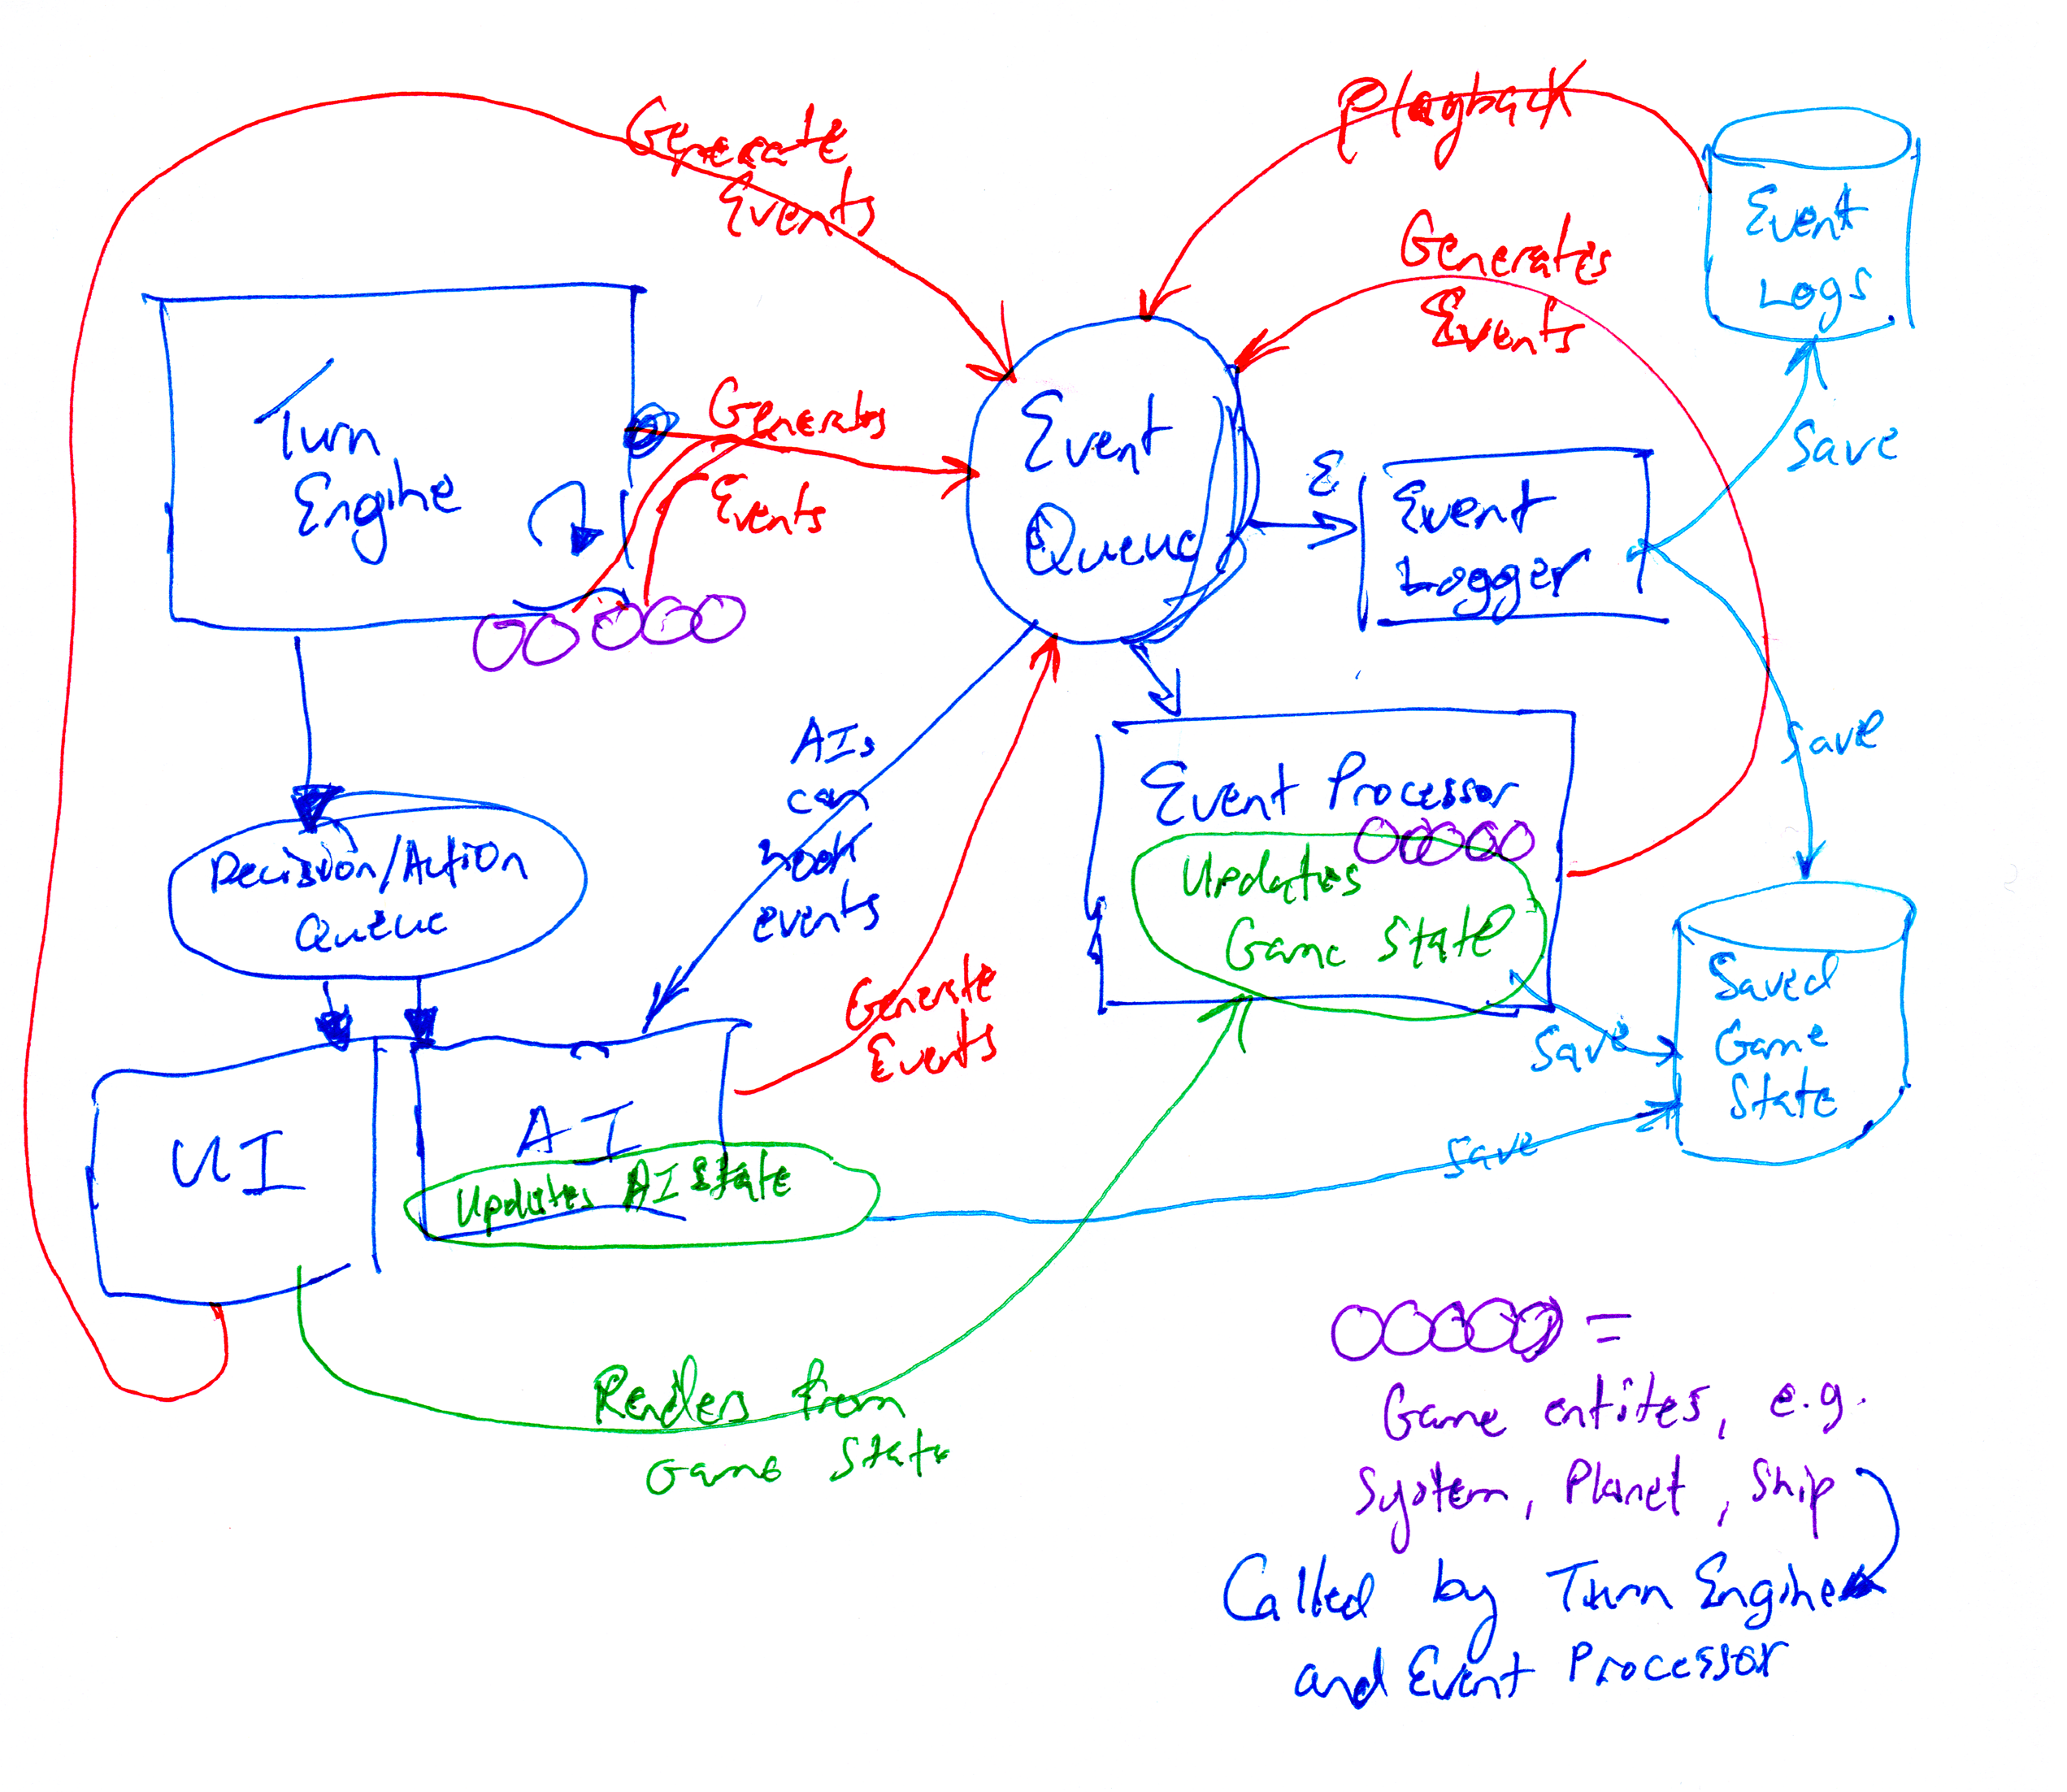 Generate
Events
Playback
Event
Logs
Generates
Events
Turn
Engine
Generates
Events
Event
Queue
E
Event
Logger
Save
AIs
can
hook
events
Event Processor
Updates
Game State
Save
Decision/Action
Queue
Generate
Events
Saved
Game
State
Save
UI
AI
Updates AI State
Save
Renders from
Game State
=
Game entites, e.g.
System, Planet, Ship
Called by Turn Engine
and Event Processor